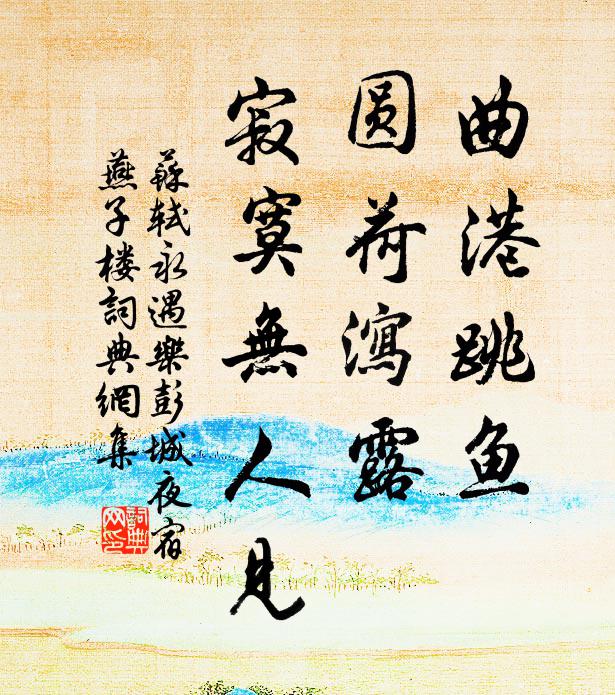 曲港跳鱼
圆荷瀉露
寂寞無人見
蘇軾永遇樂彭城夜宿
燕子楼詞典網集
詞典
网印